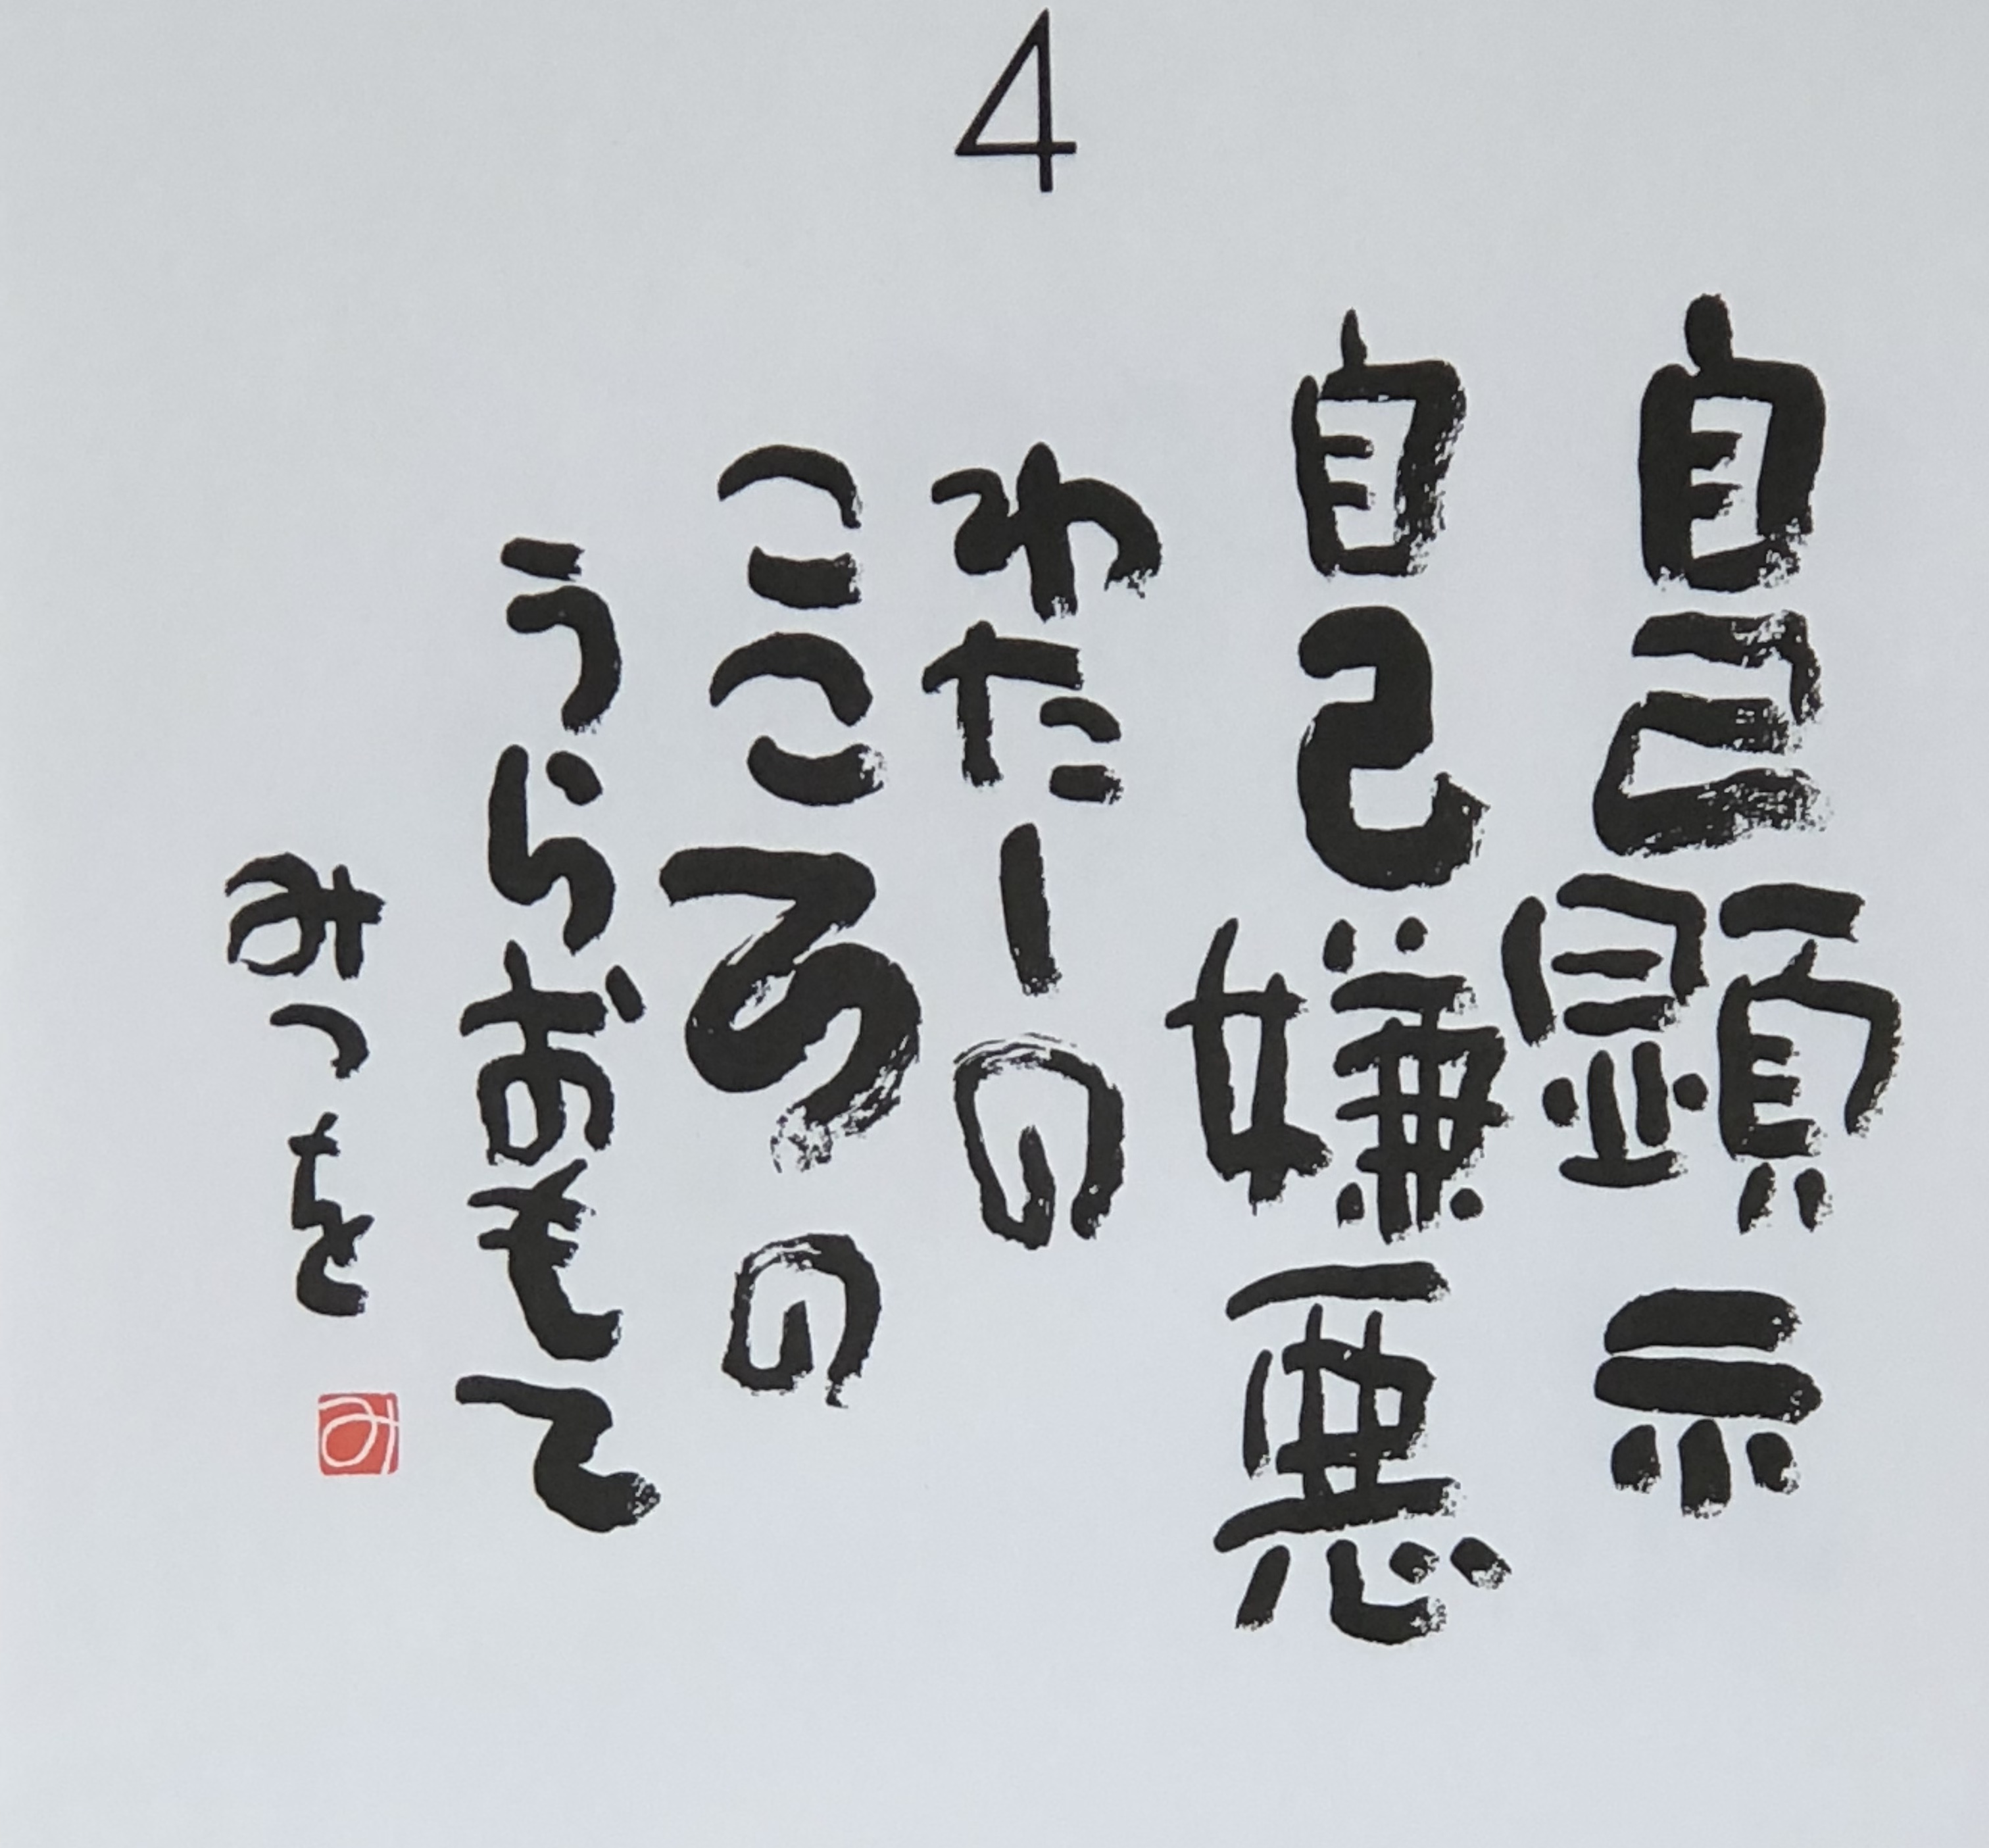 4
自己顕示
自己嫌悪
わたしの
こころの
うらおもて
みつを
み